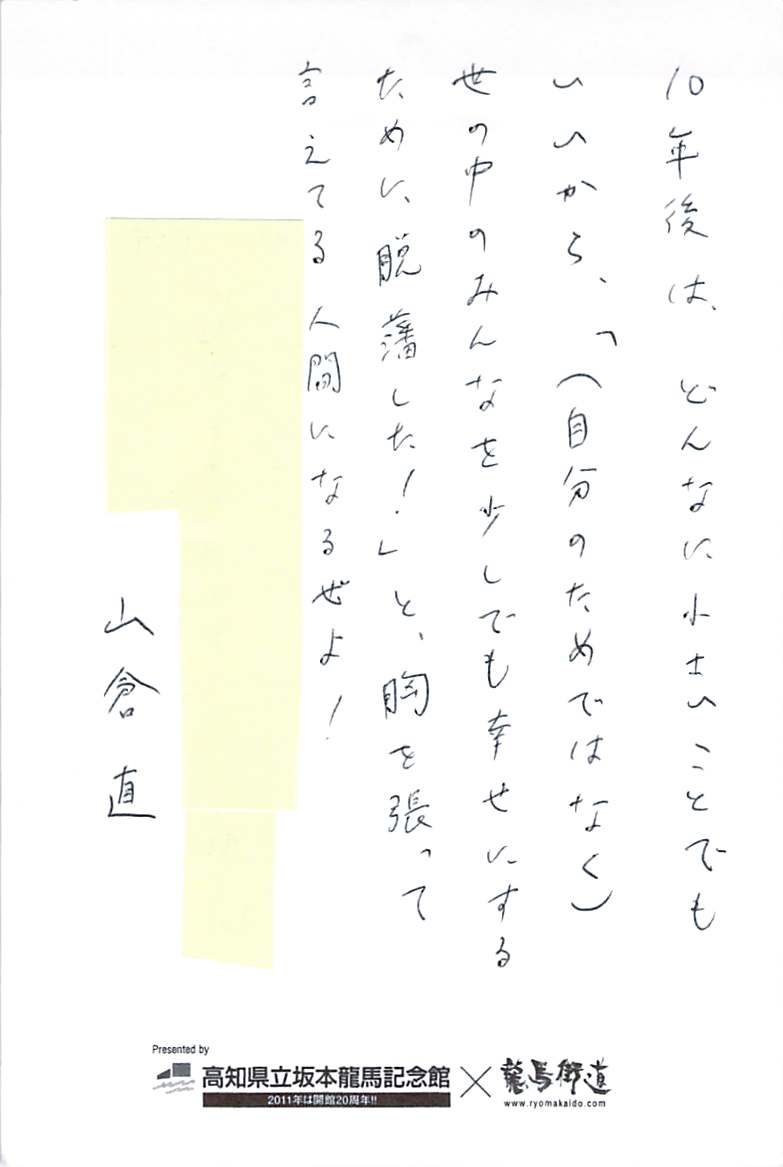 10年後は、どんなに小さいことでも
いいから、「(自分のためではなく)
世の中のみんなを少しでも幸せにする
ために、脱藩した!」と、胸を張って
言えてる人間になるぜよ!
山倉直
Presented by
高知県立坂本龍馬記念館×龍馬街道
2011年は開館20周年!!
www.ryomakaido.com